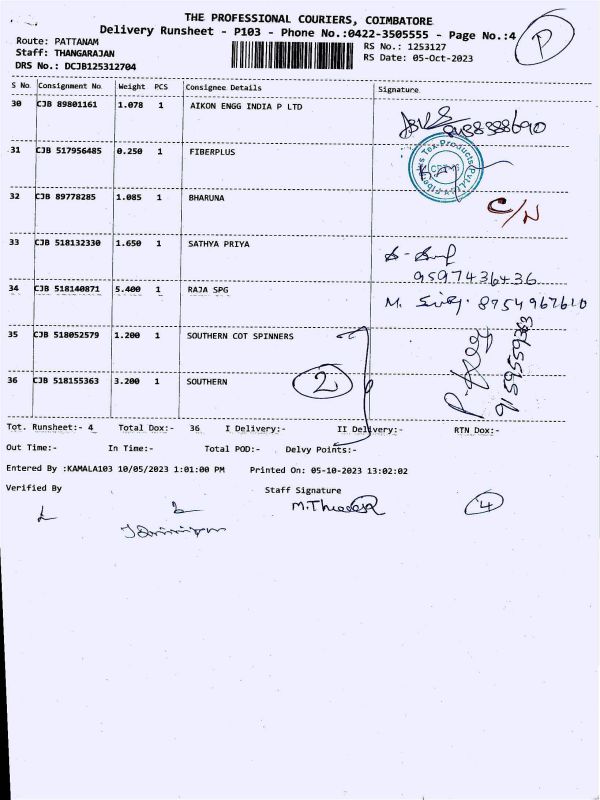 THE PROFESSIONAL COURIERS, COIMBATORE
Delivery Runsheet - P103 - Phone No.:0422-3505555 - Page No.:4
P
Route: PATTANAM
RS No.: 1253127
Staff: THANGARAJAN
RS Date: 05-Oct-2023
DRS No.: DCJB125312704
S No Consignment No Weight PCS Consignee Details Signature
30 CJB 89801161 1.078 1 AIKON ENGG INDIA P LTD
31 CJB 517956485 0.250 1 FIBERPLUS
32 CJB 89778285 1.085 1 BHARUNA C/N
33 CJB 518132330 1.650 1 SATHYA PRIYA
9597436436
34 CJB 518140871 5.400 1 RAJA SPG M. 8754967610
35 CJB 518052579 1.200 1 SOUTHERN COT SPINNERS
9159559363
36 CJB 518155363 3.200 1 SOUTHERN 2
Tot. Runsheet:- 4 Total Dox:- 36 I Delivery:- II Delivery:- RTN Dox:-
Out Time:- In Time:- Total POD:- Delvy Points:-
Entered By :KAMALA103 10/05/2023 1:01:00 PM Printed On: 05-10-2023 13:02:02
Verified By Staff Signature
4